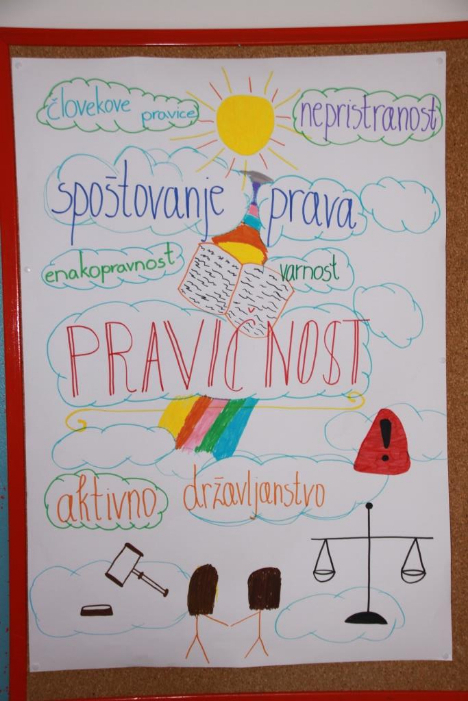 človekove pravice
nepristranost
spoštovanje prava
enakopravnost
varnost
PRAVIČNOST
!
aktivno državljanstvo